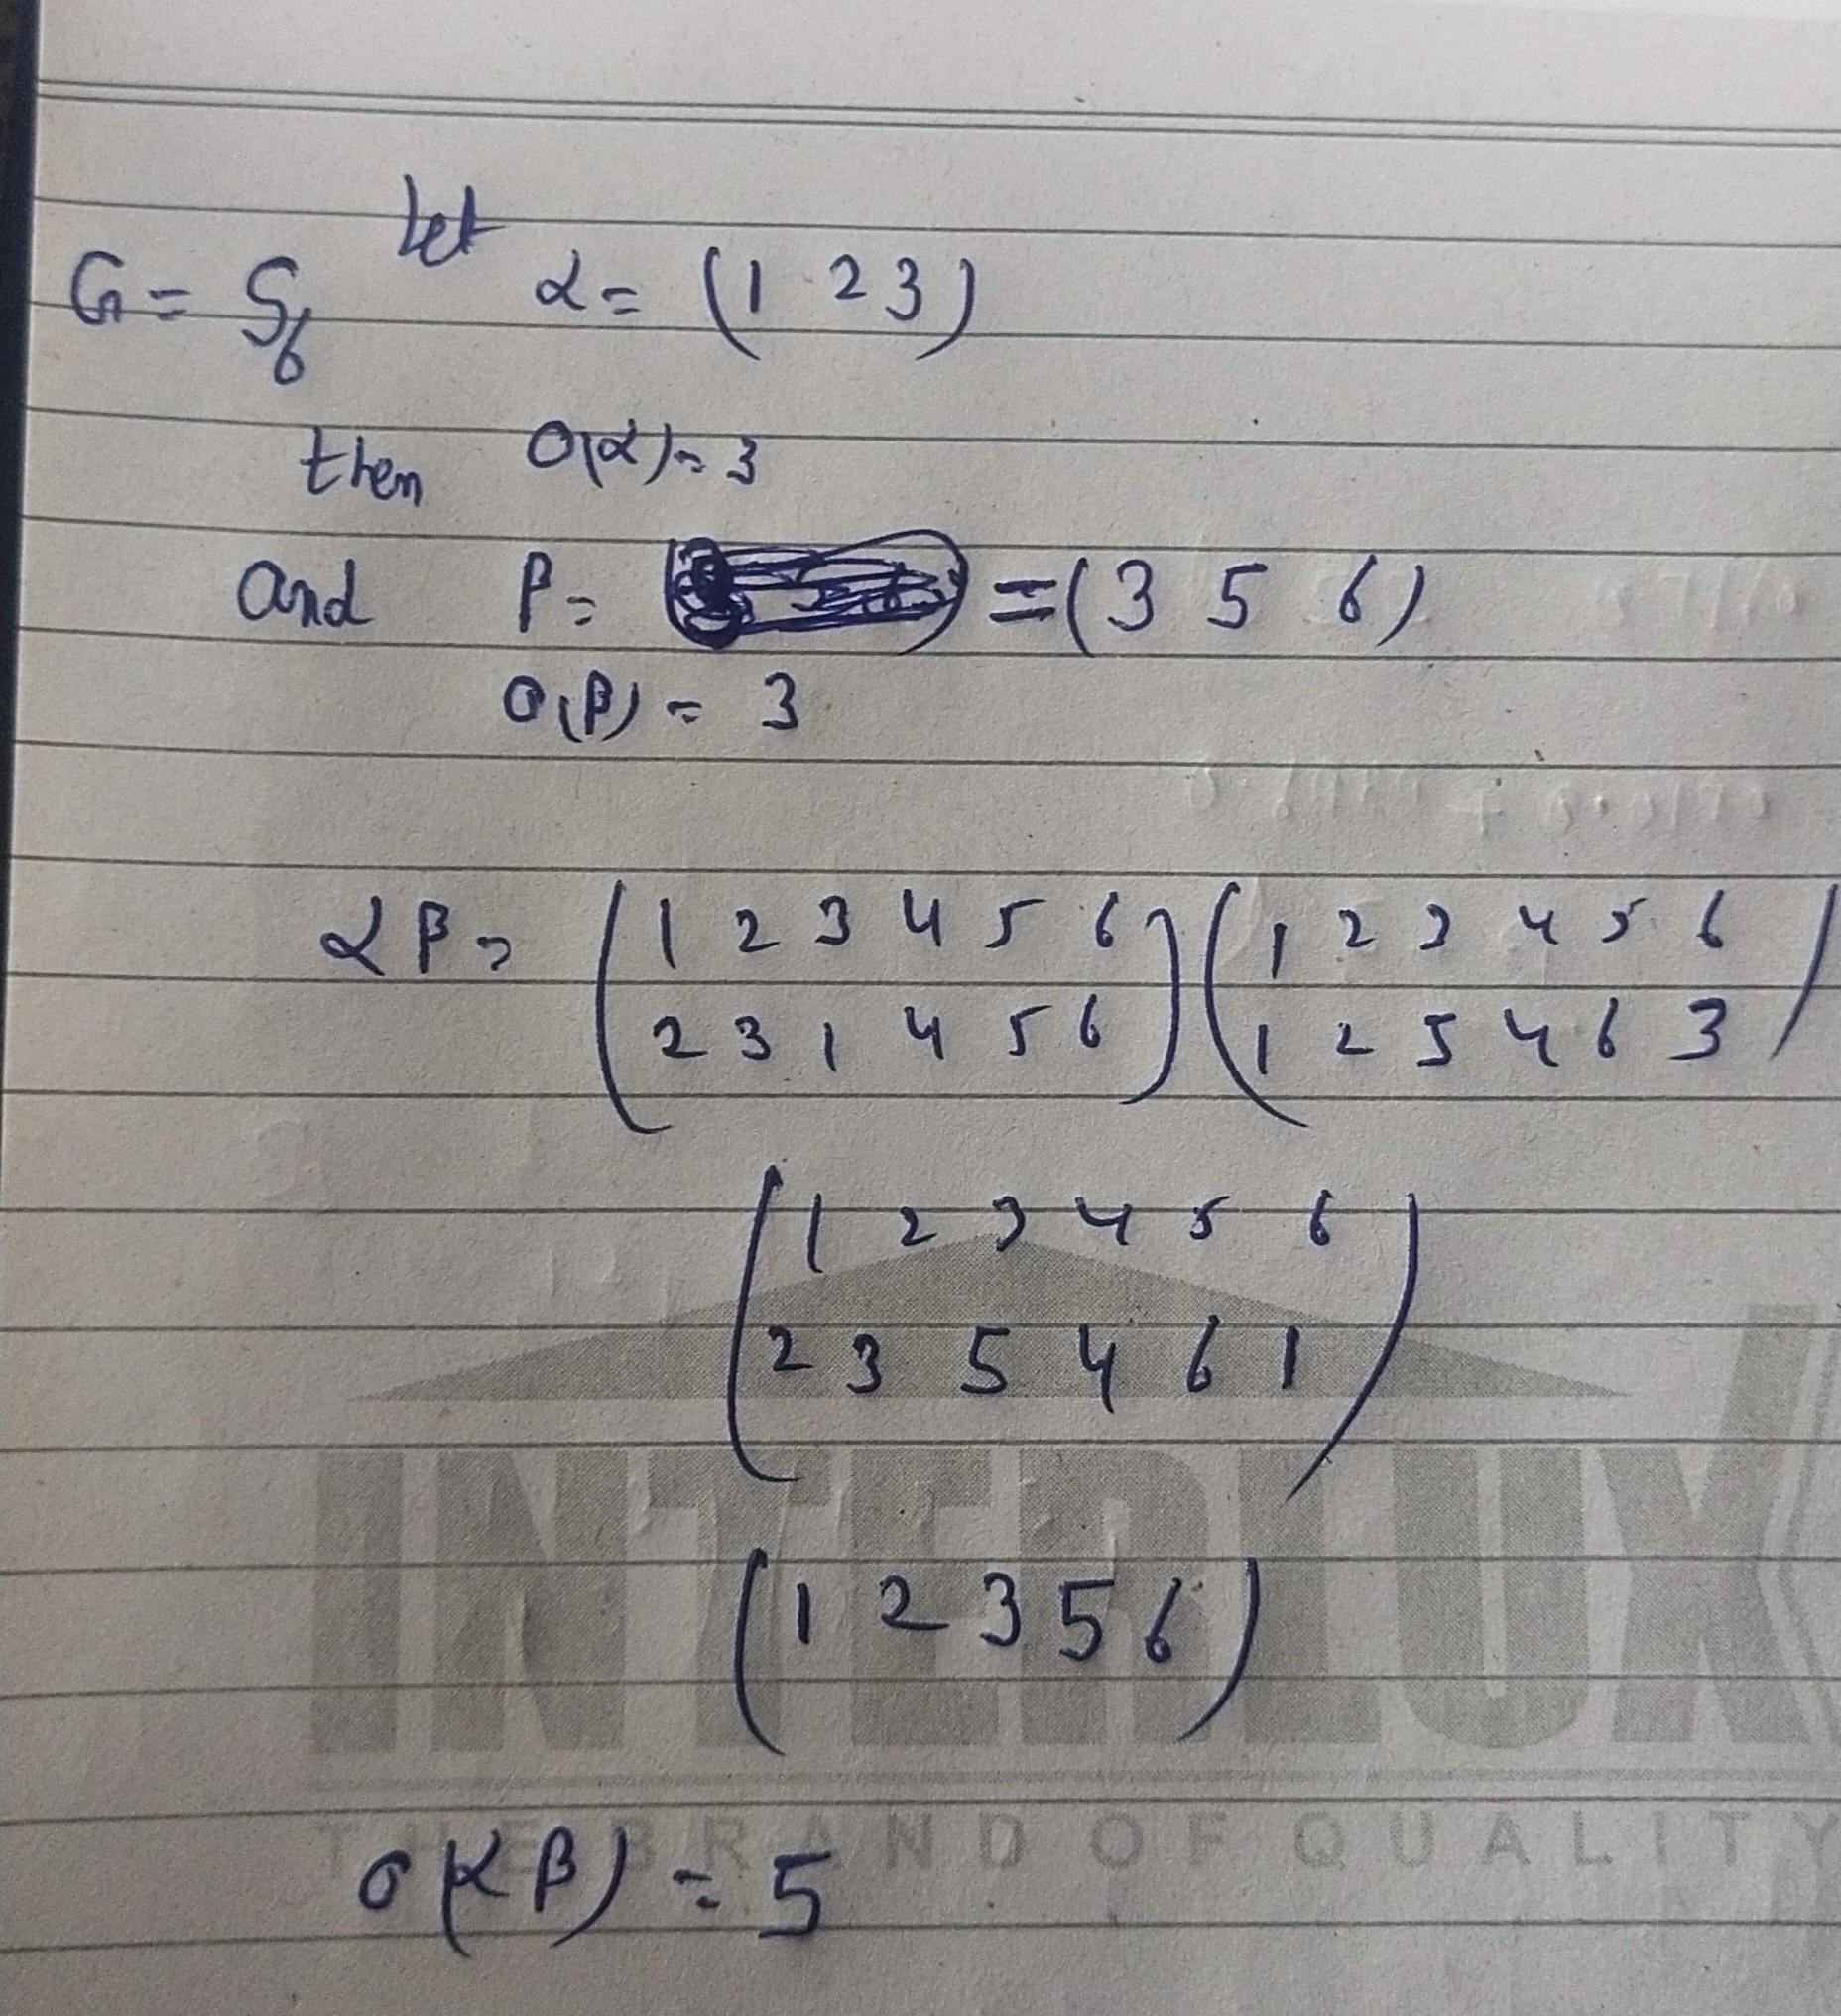 G = S6 Let α = (1 2 3)
then O(α) = 3
and β = = (3 5 6)
O(β) = 3
αβ = (1 2 3 4 5 6) (1 2 3 4 5 6)
(2 3 1 4 5 6) (1 2 5 4 6 3)
(1 2 3 4 5 6)
(2 3 5 4 6 1)
(1 2 3 5 6)
INTERLUX
THE BRAND OF QUALITY
O(αβ) = 5